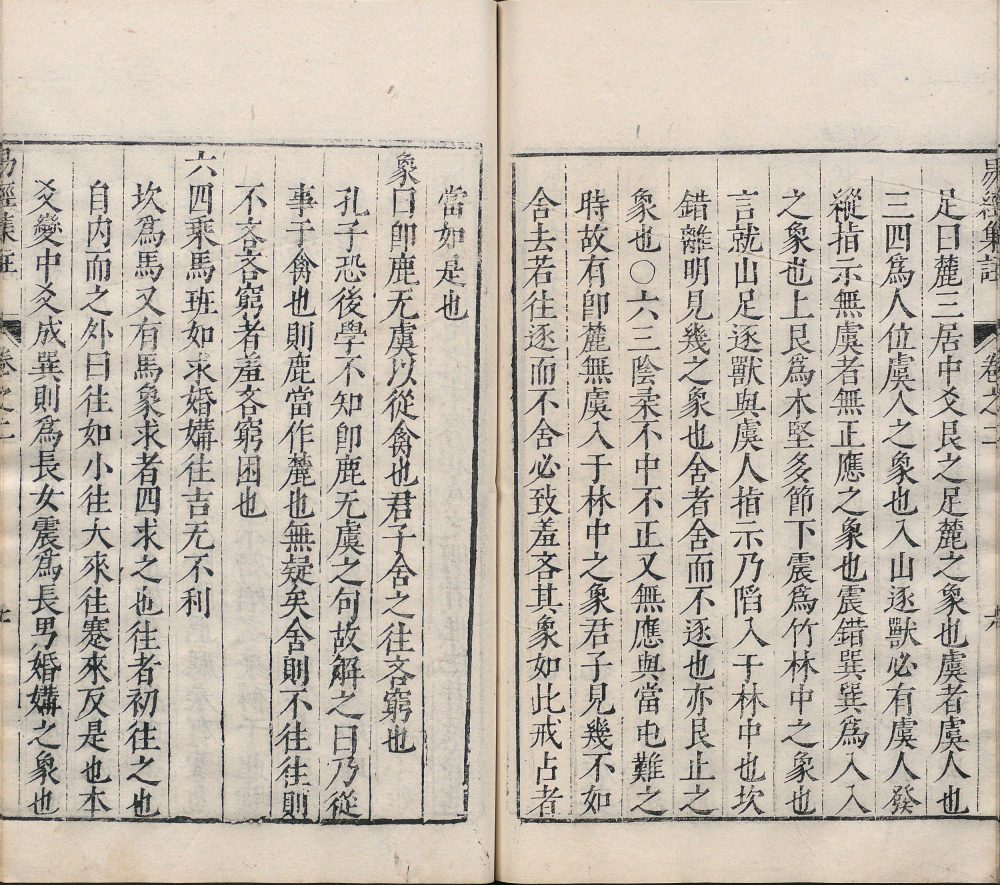 易經集註
卷之二
足曰麓三居中爻艮之足麓之象也虞者虞人也
三四爲人位虞人之象也入山逐獸必有虞人發
縱指示無虞者無正應之象也震錯巽巽爲入入
之象也上艮爲木堅多節下震爲竹林中之象也
言就山足逐獸與虞人指示乃陷入于林中也坎
錯離明見幾之象也舍者舍而不逐也亦艮止之
象也○六三陰柔不中不正又無應與當屯難之
時故有卽麓無虞入于林中之象君子見幾不如
舍去若往逐而不舍必致羞吝其象如此戒占者
當如是也
象曰卽鹿无虞以從禽也君子舍之往吝窮也
孔子恐後學不知卽鹿无虞之句故解之曰乃從
事于禽也則鹿當作麓也無疑矣舍則不往往則
不吝吝窮者羞吝窮困也
六四乘馬班如求婚媾往吉无不利
坎爲馬又有馬象求者四求之也往者初往之也
自内而之外曰往如小往大來往蹇來反是也本
爻變中爻成巽則爲長女震爲長男婚媾之象也
易經集註
卷之二